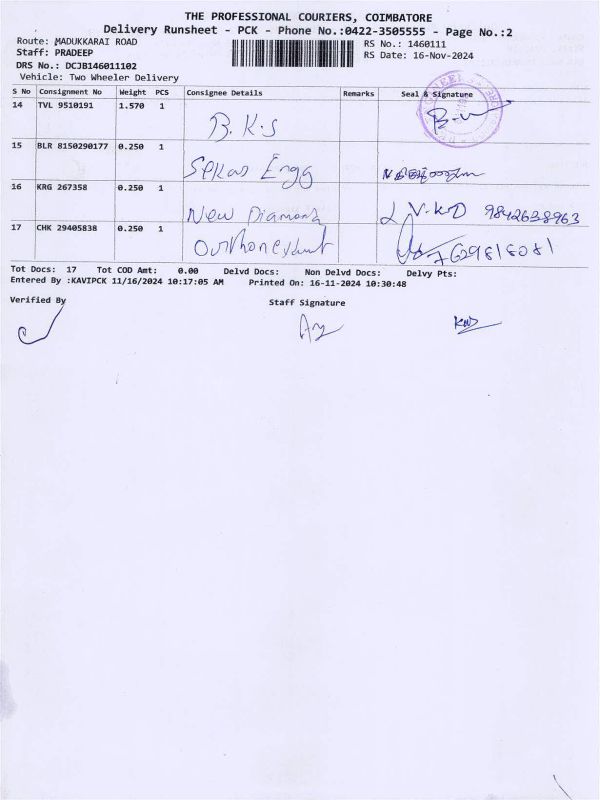 THE PROFESSIONAL COURIERS, COIMBATORE
Delivery Runsheet - PCK - Phone No.:0422-3505555 - Page No.:2
Route: MADUKKARAI ROAD
Staff: PRADEEP
DRS No.: DCJB146011102
Vehicle: Two Wheeler Delivery
RS No.: 1460111
RS Date: 16-Nov-2024
S No Consignment No Weight PCS Consignee Details Remarks Seal & Signature
14 TVL 9510191 1.570 1 B.K.S
15 BLR 8150290177 0.250 1 Engg
16 KRG 267358 0.250 1 New Diamond 9842638963
17 CHK 29405838 0.250 1 7629818081
Tot Docs: 17 Tot COD Amt: 0.00 Delvd Docs: Non Delvd Docs: Delvy Pts:
Entered By :KAVIPCK 11/16/2024 10:17:05 AM Printed On: 16-11-2024 10:30:48
Verified By Staff Signature